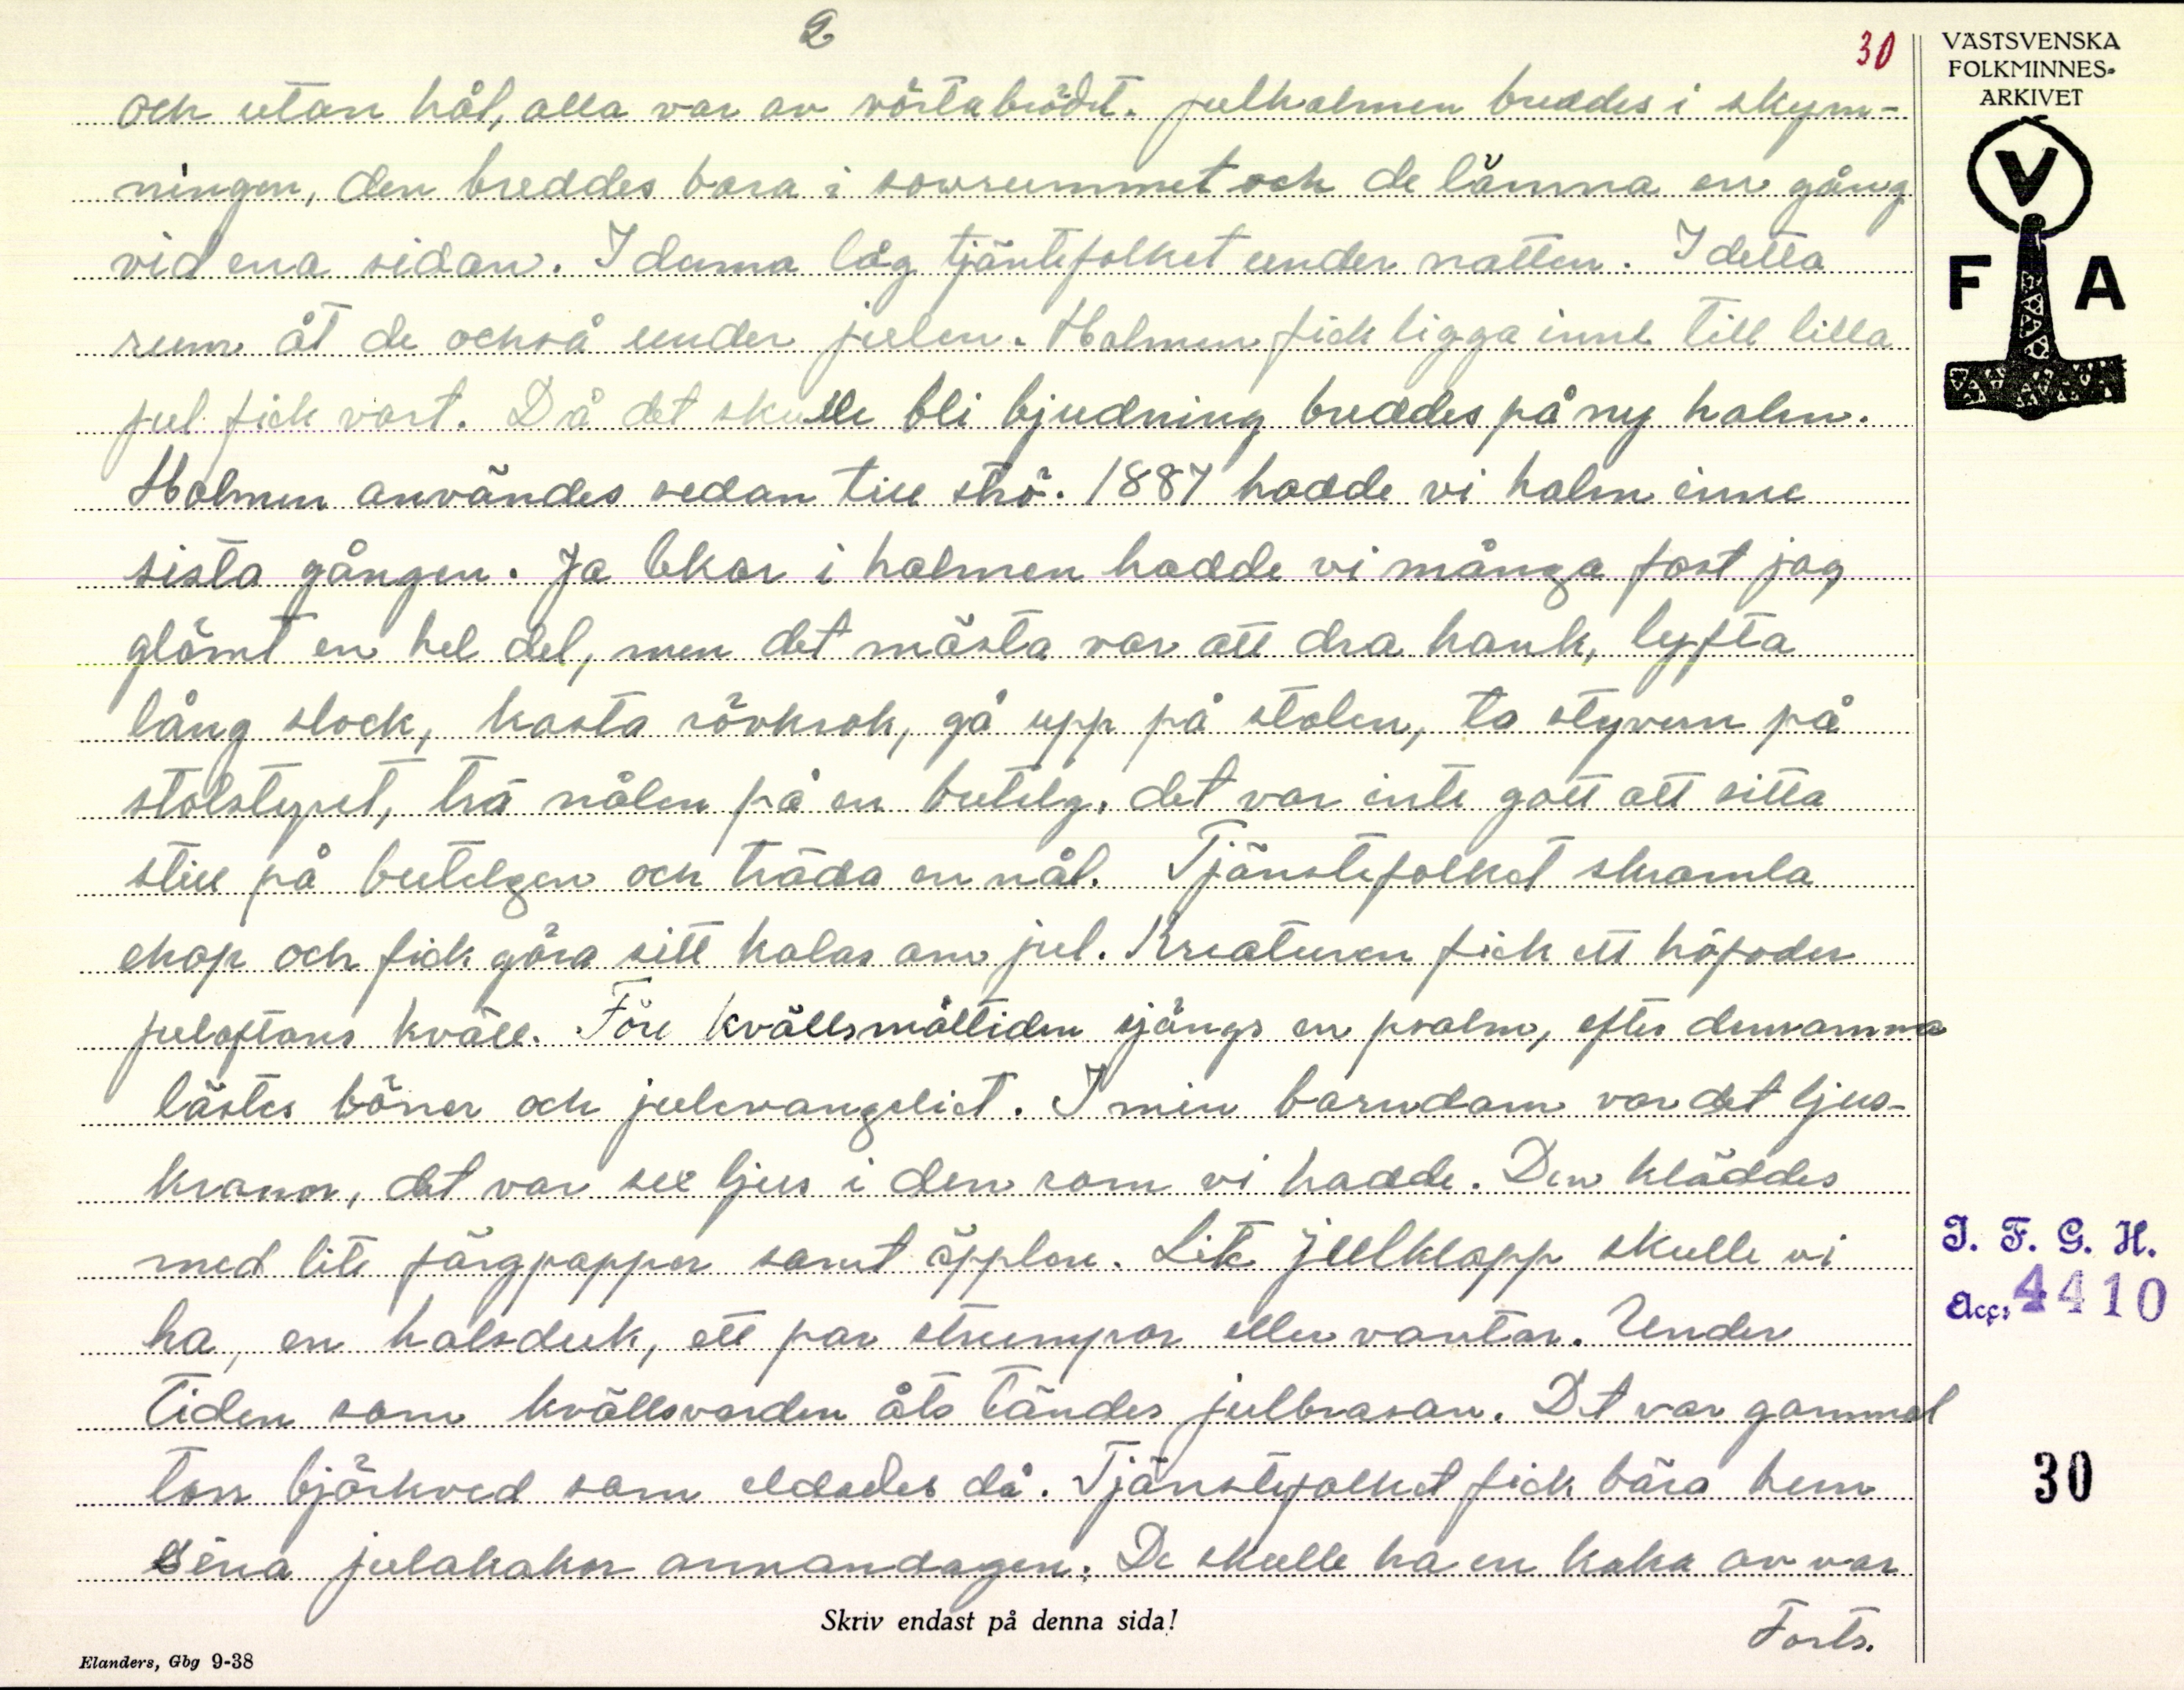 2
30
VÄSTSVENSKA
FOLKMINNES-
ARKIVET
V
F A
och utan hål, alla var av vörtabrödt. julhalmen breddes i skym-
ningen, den breddes bara i sovrummet och de lämna en gång
vid ena sidan. I denna låg tjäntefolket under natten. I detta
rum åt de också under julen. Halmen fick ligga inne till lilla
jul fick vart. Då det skulle bli bjudning breddes på ny halm.
Halmen användes sedan till strö. 1887 hadde vi halm inne
sista gången. Ja lekar i halmen hadde vi många fast jag
glömt en hel del, men det mästa var att dra hank, lyfta
lång stock, kasta rövkrok, gå upp på stolen, ta styvern på
stolstyret, trä nålen på en butelg. det var inte gott att sitta
still på butelgen och träda en nål. Tjänstefolket skramla
ehop och fick göra sitt kalas om jul. Kreaturen fick ett höfoder
julaftons kväll. Före kvällsmåltiden sjöngs en psalm, efter densamma
lästes böner och julevangeliet. I min barndom var det ljus-
kronor, det var sex ljus i den som vi hadde. Den kläddes
med lite färgpapper samt äpplen. Lite julklapp skulle vi
ha, en halsduk, ett par strumpor eller vantar. Under
tiden som kvällsvarden åts tändes julbrasan. Dt var gammal
torr björkved som eldades då. Tjänstefolket fick bära hem
sina julakakor annandagen. De skulle ha en kaka av var
Forts.
Skriv endast på denna sida!
Elanders, Gbg 9-38
I. F. G. H.
Acc. 4410
30